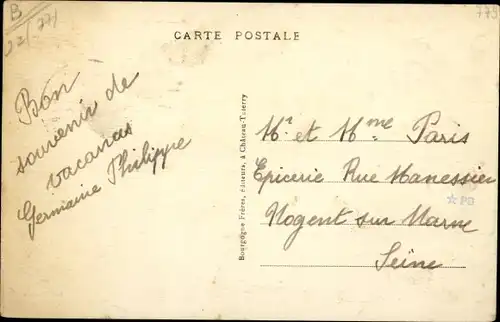 B
22/77/
775
CARTE POSTALE
Bon
souvenir de
vacances
Germaine Philippe
Bourgogne Frères, éditeurs, à Château-Thierry
Mr et Mme Paris
Epicerie Rue Manessier
Nogent sur Marne
Seine
☆ PB